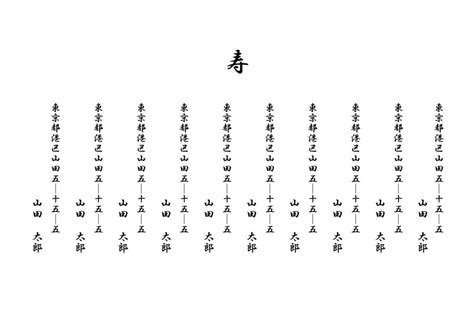 寿
東京都港区山田五―十五―五
山田 太郎
東京都港区山田五―十五―五
山田 太郎
東京都港区山田五―十五―五
山田 太郎
東京都港区山田五―十五―五
山田 太郎
東京都港区山田五―十五―五
山田 太郎
東京都港区山田五―十五―五
山田 太郎
東京都港区山田五―十五―五
山田 太郎
東京都港区山田五―十五―五
山田 太郎
東京都港区山田五―十五―五
山田 太郎
東京都港区山田五―十五―五
山田 太郎